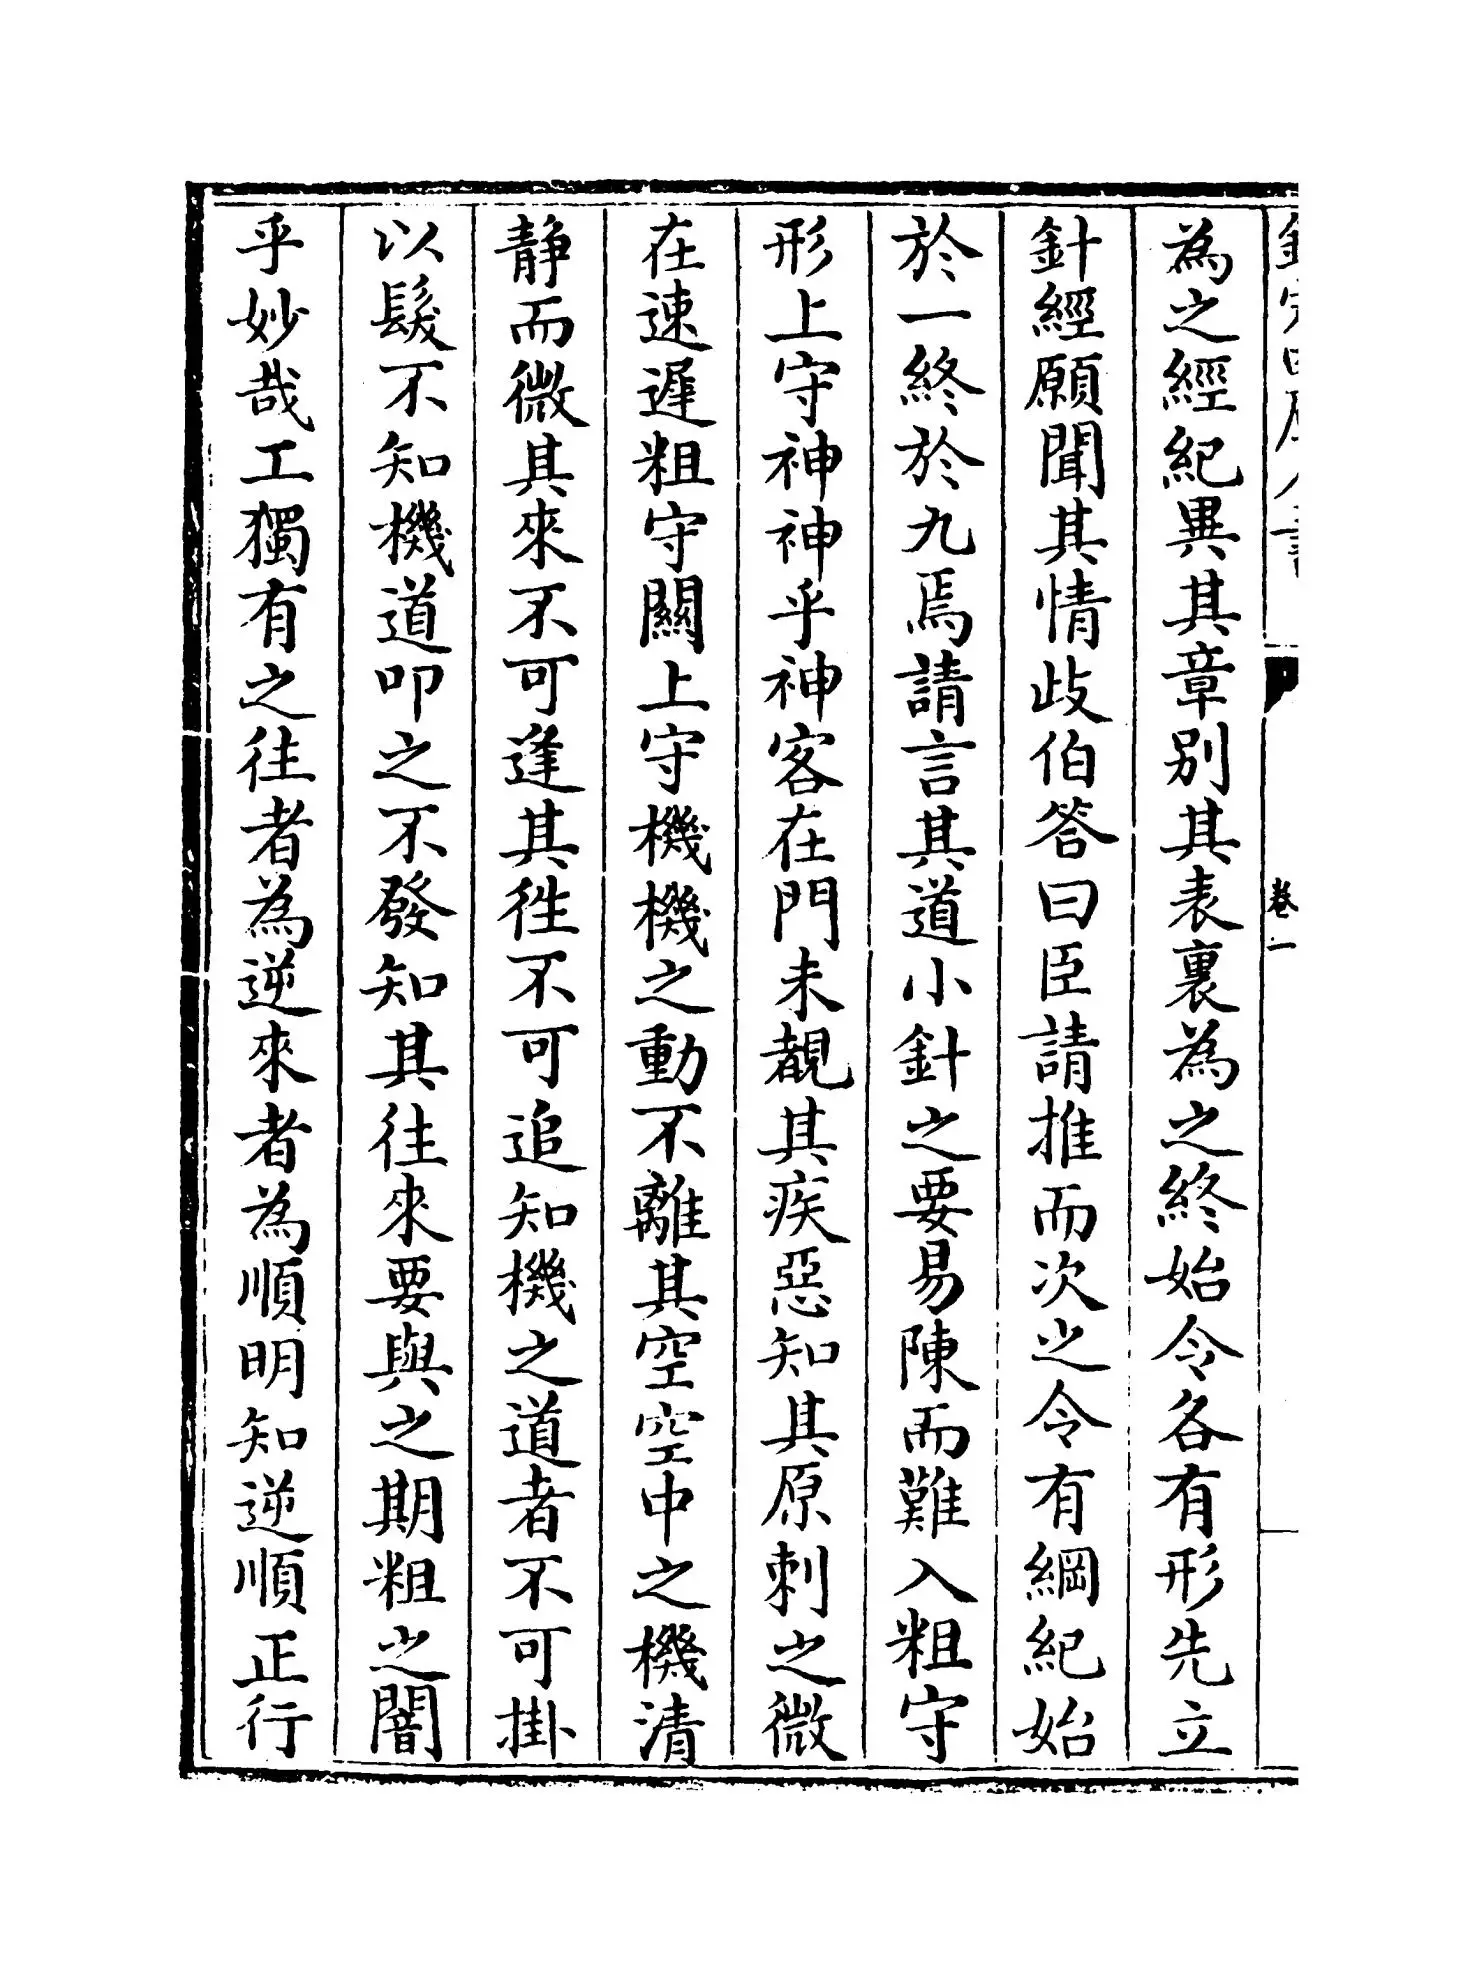 為之經紀異其章别其表裏為之終始令各有形先立
針經願聞其情歧伯答曰臣請推而次之令有綱紀始
於一終於九焉請言其道小針之要易陳而難入粗守
形上守神神乎神客在門未覩其疾惡知其原刺之微
在速遲粗守關上守機機之動不離其空空中之機清
静而微其來不可逢其徃不可追知機之道者不可掛
以髮不知機道叩之不發知其往來要與之期粗之闇
乎妙哉工獨有之往者為逆來者為順明知逆順正行
卷一